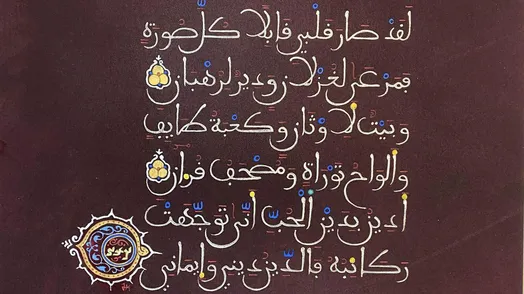 لَقَدْ صَارَ قَلْبِي قَابِلًا كُلَّ صُورَةٍ
فَمَرْعًى لِغِزْلَانٍ وَدَيْرٌ لِرُهْبَانِ
وَبَيْتٌ لِأَوْثَانٍ وَكَعْبَةُ طَايِفٍ
وَأَلْوَاحُ تَوْرَاةٍ وَمُصْحَفُ قُرْآنِ
أَدِينُ بِدِينِ الْحُبِّ أَنَّى تَوَجَّهَتْ
رَكَائِبُهُ فَالدِّينُ دِينِي وَإِيمَانِي